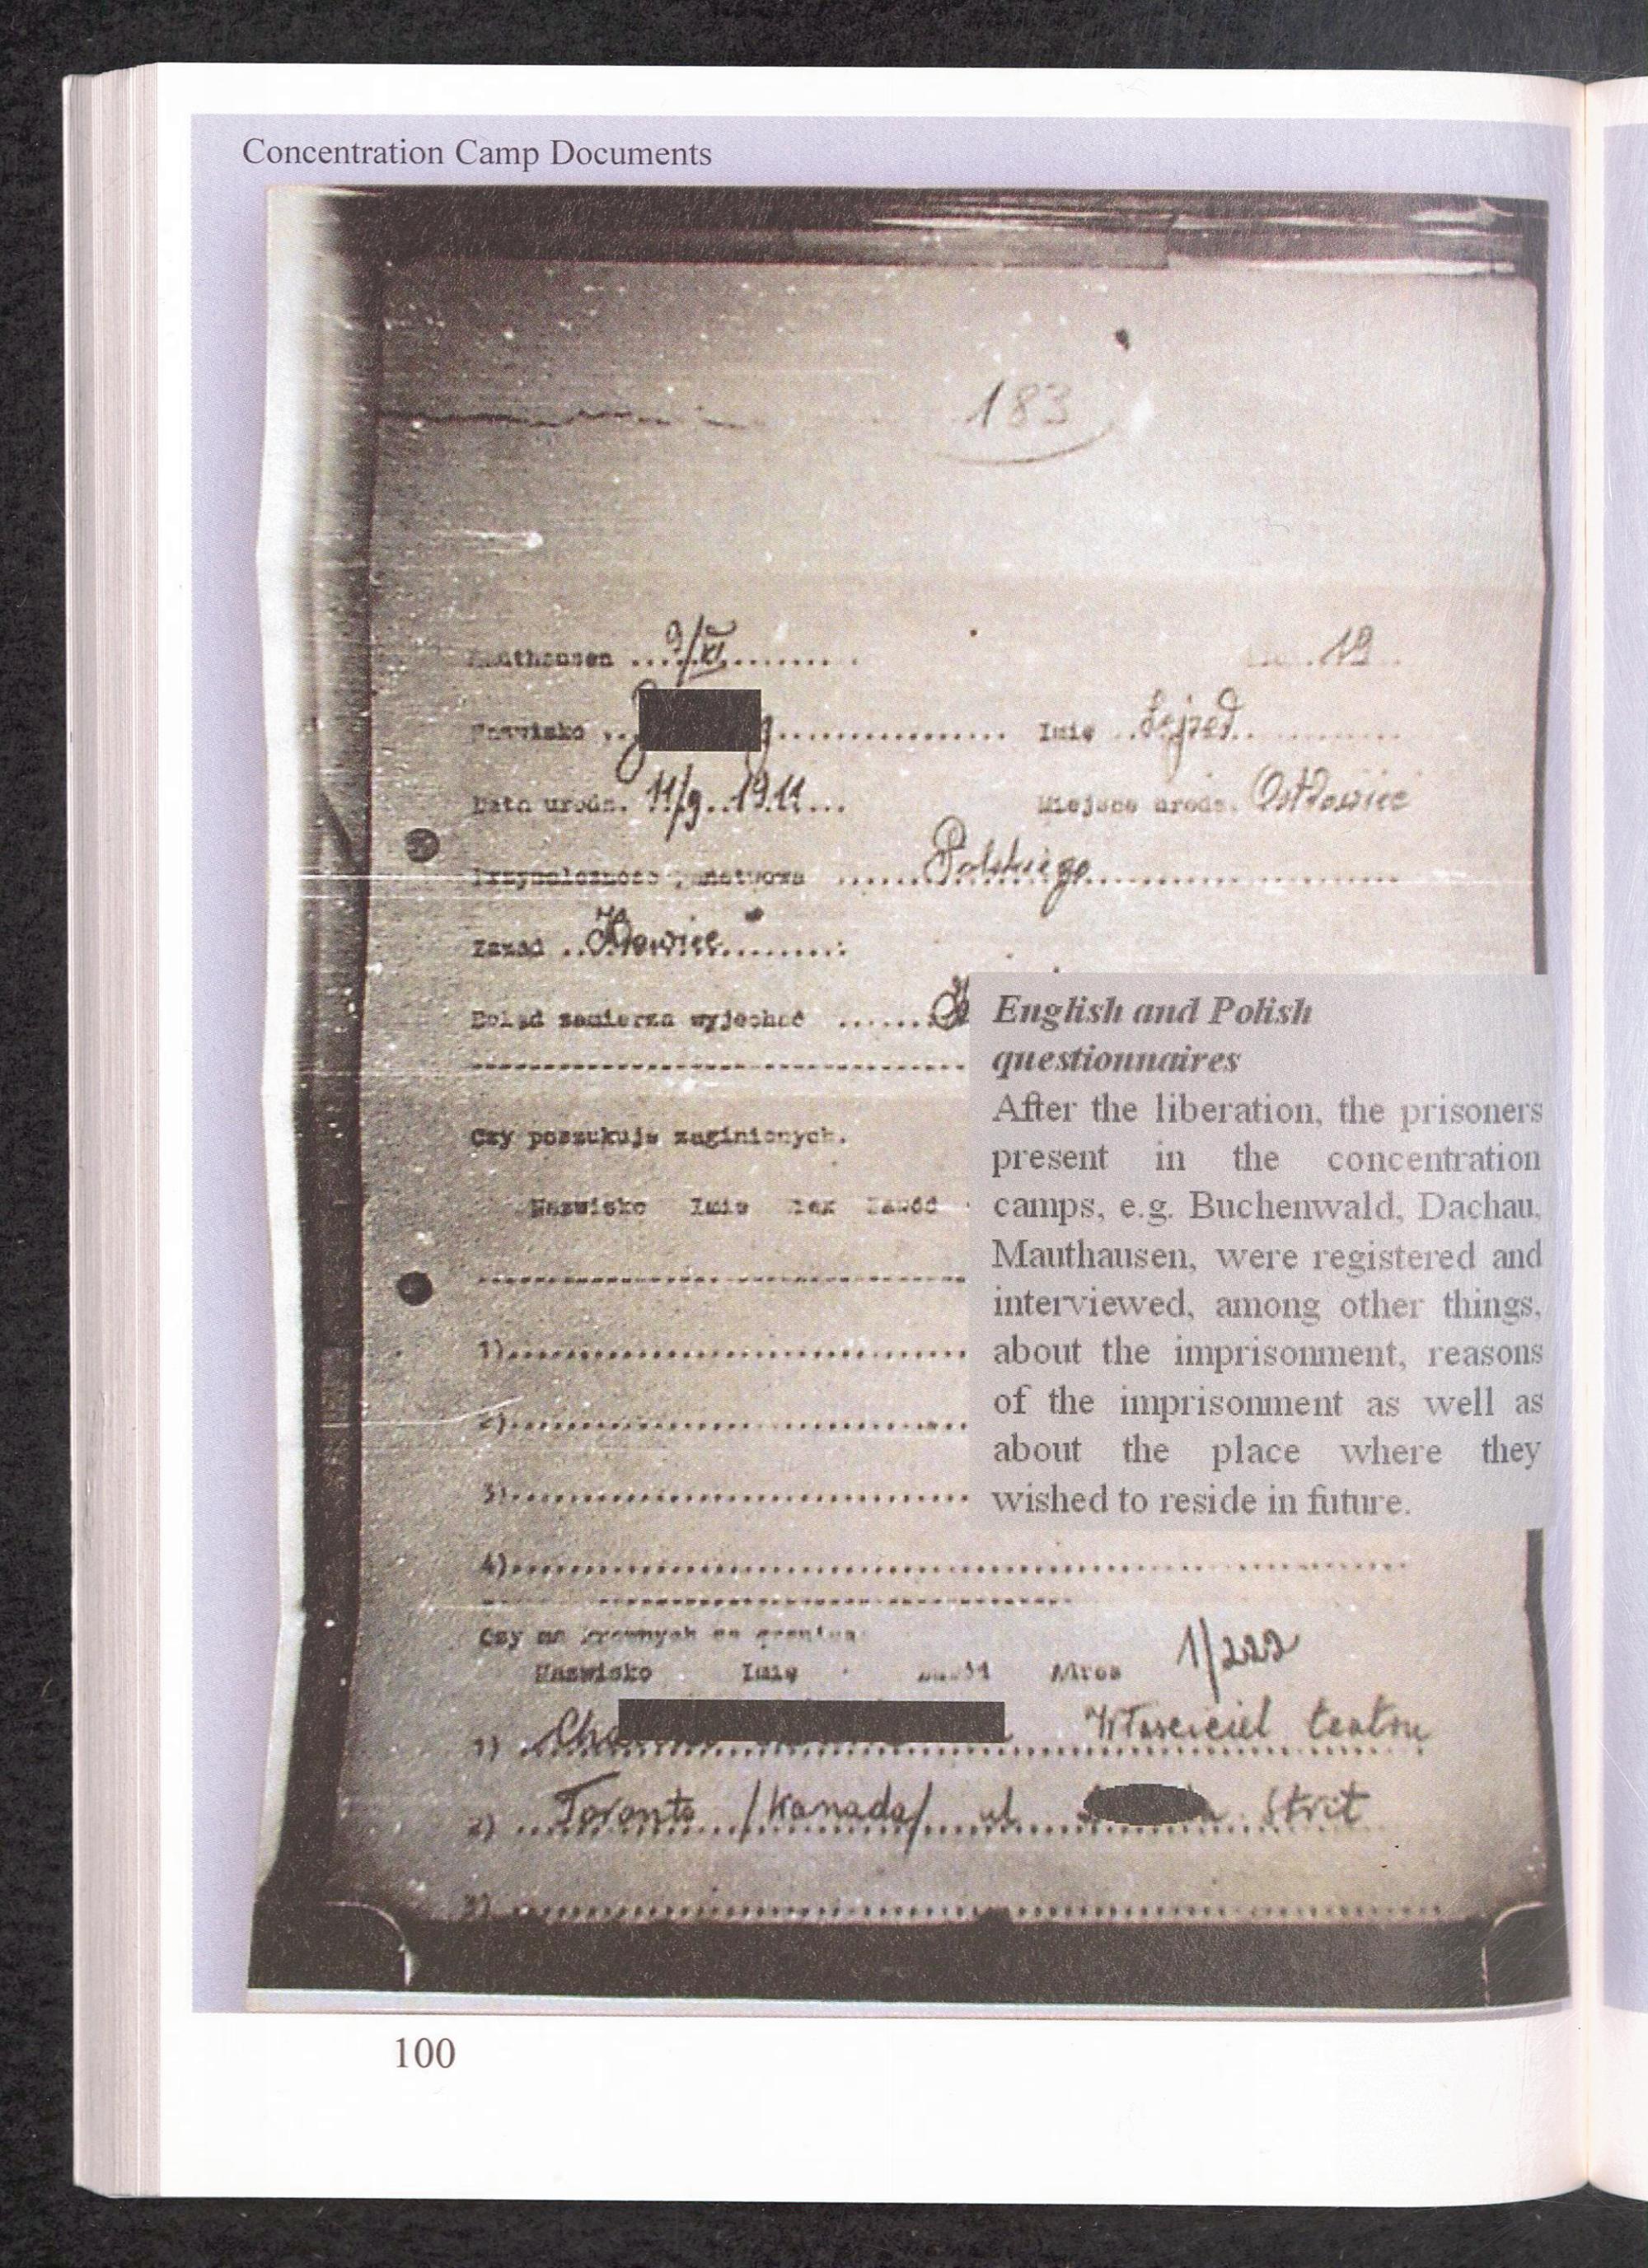 Concentration Camp Documents
183
Mauthausen ..9/XI.. 19..
Nazwisko .. Imię ..Lejzed..
Data urodz. 11/9..1911... Miejsce urodz. Ostrowiec
Przynależność państwowa .....Polskiego
Zawód ..
Dokąd zamierza wyjechać ......
Czy poszukuje zaginionych.
Nazwisko Imię Zawód
1)
2)
3)
4)
Czy ma krewnych za granicą
1/222
Nazwisko Imię Zawód Adres
1) Właseciel teatru
2) Toronto /Kanada/ ul. Strit
3)
English and Polish
questionnaires
After the liberation, the prisoners
present in the concentration
camps, e.g. Buchenwald, Dachau,
Mauthausen, were registered and
interviewed, among other things,
about the imprisonment, reasons
of the imprisonment as well as
about the place where they
wished to reside in future.
100